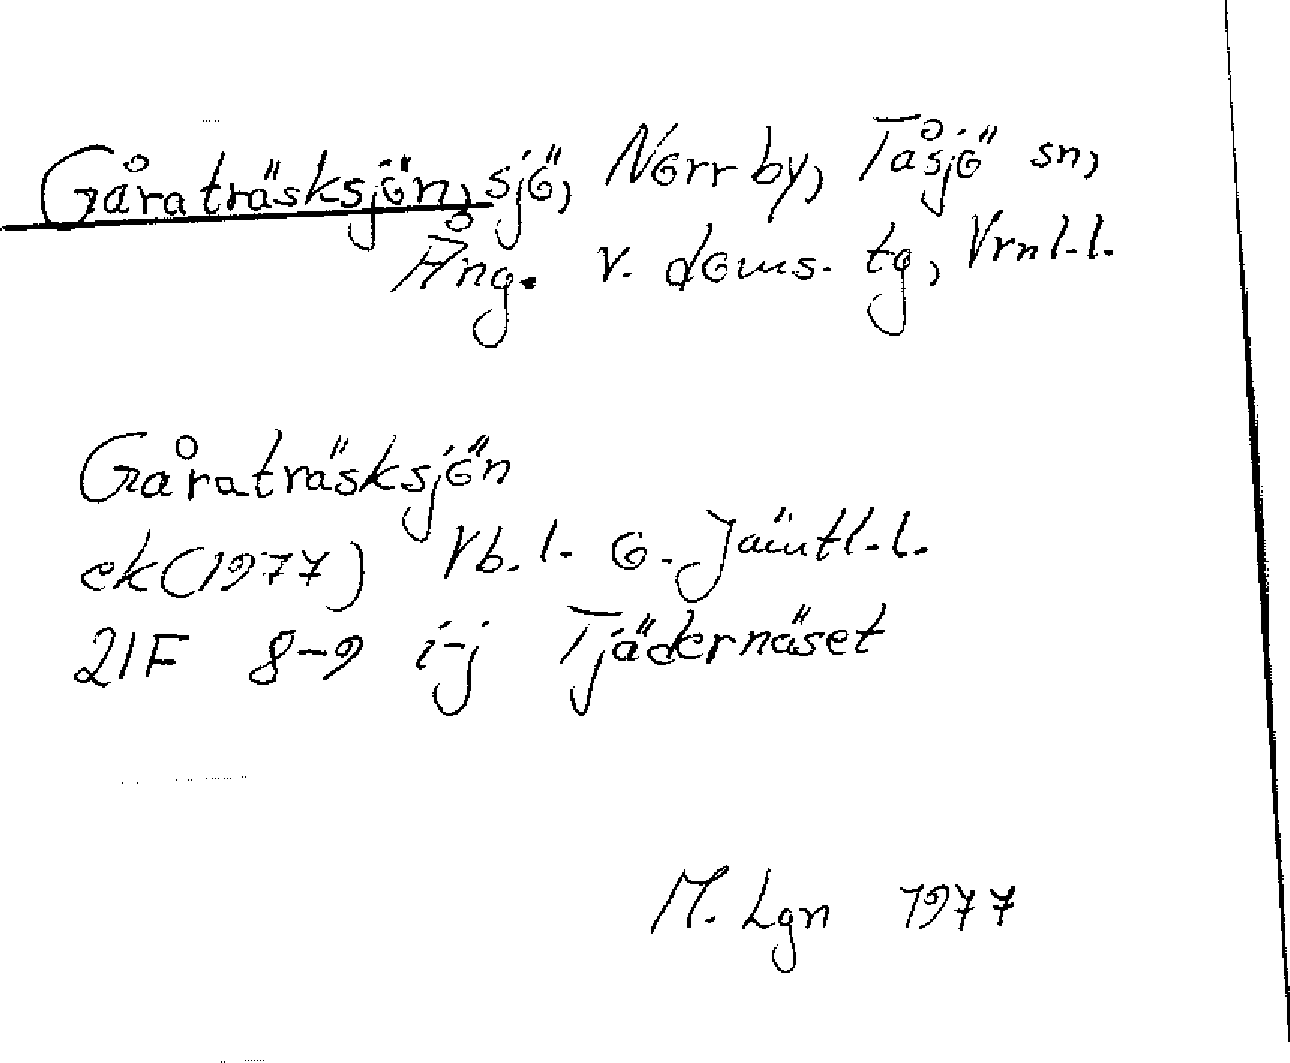 Gåraträsksjön, sjö, Norrby, Tåsjö sn,
Ång. v. doms. tg, Vrnl.l.
Gåraträsksjön
ek(1977) Vb.l. o. Jämtl.l.
21F 8-9 i-j Tjädernäset
M. Lgn 1977